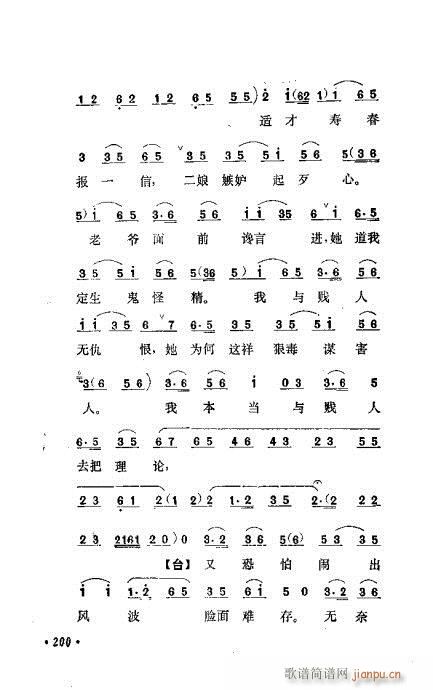 1 2 6 2 1 2 6 5 5 5) 2 i (62 1) i 6 5
适才寿春
3 3 5 6 5 3 5 5 i 5 6 5 (3 6
报一信,二娘嫉妒起歹心。
5) i 6 5 3·6 5 6 i i 35 6 i 6·5
老爷面前谗言进,她道我
3 5 5 i 5 6 5 (36 5) i 6 5 3·6 5 6
定生鬼怪精。我与贱人
i i 3 5 6 7 6·5 3 5 5 i 5 6
无仇恨,她为何这样狠毒谋害
3 (6 5 6) 3·6 5 6 i 0 3 3·6 5
人。我本当与贱人
6·5 3 5 6 7 6 5 4 6 4 3 2 3 5 5
去把理论,
2 3 6 1 2 (1 2) 1·2 3 5 2·(2 2 2
2 3 2161 2 0) 0 3·2 3 6 5 (6) 5 3 3 5
【台】又恐怕闹出
i i 1·2 6 5 3 5 6 5 6 i 5 0 0 5
风波脸面难存。无奈
·200·
歌谱简谱网
jianpu.cn